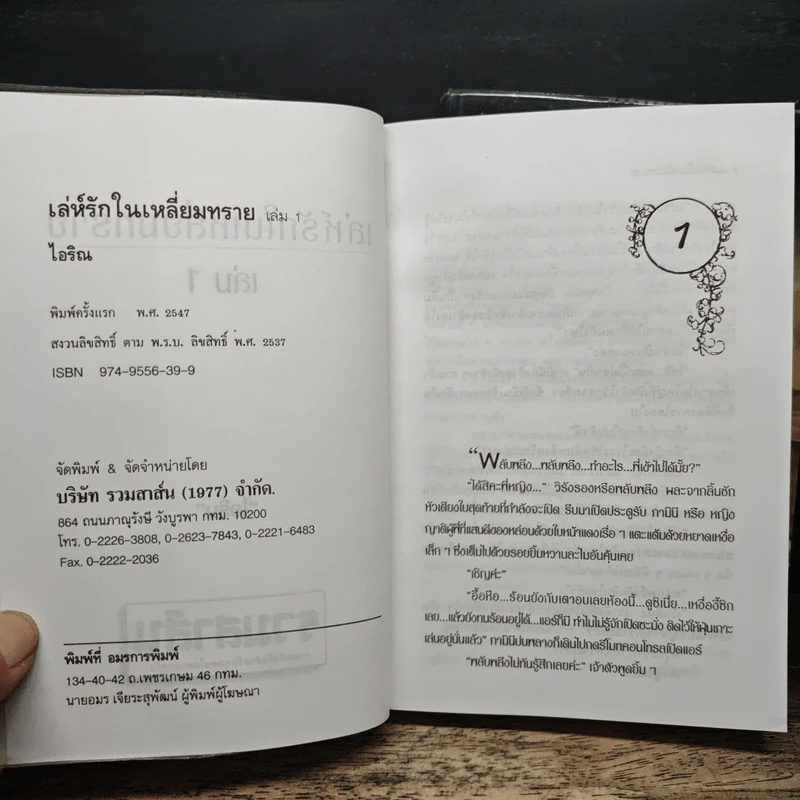 เล่ห์รักในเหลี่ยมทราย เล่ม 1
ไอริณ
พิมพ์ครั้งแรก พ.ศ. 2547
สงวนลิขสิทธิ์ ตาม พ.ร.บ. ลิขสิทธิ์ พ.ศ. 2537
ISBN 974-9556-39-9
จัดพิมพ์ & จัดจำหน่ายโดย
บริษัท รวมสาส์น (1977) จำกัด.
864 ถนนภาณุรังษี วังบูรพา กทม. 10200
โทร. 0-2226-3808, 0-2623-7843, 0-2221-6483
Fax. 0-2222-2036
พิมพ์ที่ อมรการพิมพ์
134-40-42 ถ.เพชรเกษม 46 กทม.
นายอมร เจียระสุพัฒน์ ผู้พิมพ์ผู้โฆษณา
1
“พลับพลึง...พลับพลึง...ทำอะไร...พี่เข้าไปได้มั้ย?”
“ได้สิคะพี่หญิง...” วิรังรองหรือพลับพลึง ผละจากลิ้นชัก
หัวเตียงใบสุดท้ายที่กำลังจะเปิด รีบมาเปิดประตูรับ กามินี หรือ หญิง
ญาติผู้พี่ที่แสนดีของหล่อนด้วยใบหน้าแดงเรื่อ ๆ แตะแต้มด้วยหยาดเหงื่อ
เล็ก ๆ ซึ่งเต็มไปด้วยรอยยิ้มหวานละไมอันคุ้นเคย
“เชิญค่ะ”
“อื้อหือ...ร้อนยังกับเตาอบเลยห้องนี้...ดูซิเนี่ย...เหงื่อฮี้ซิก
เลย...แล้วยังทนร้อนอยู่ได้...แอร์ก็มี ทำไมไม่รู้จักเปิดซะมั่ง ติดไว้ให้ฝุ่นเกาะ
เล่นอยู่นั่นแล้ว” กามินีบ่นพลางก็เดินไปกดรีโมทคอนโทรลเปิดแอร์
“พลับพลึงไม่ทันรู้สึกเลยค่ะ” เจ้าตัวพูดยิ้ม ๆ